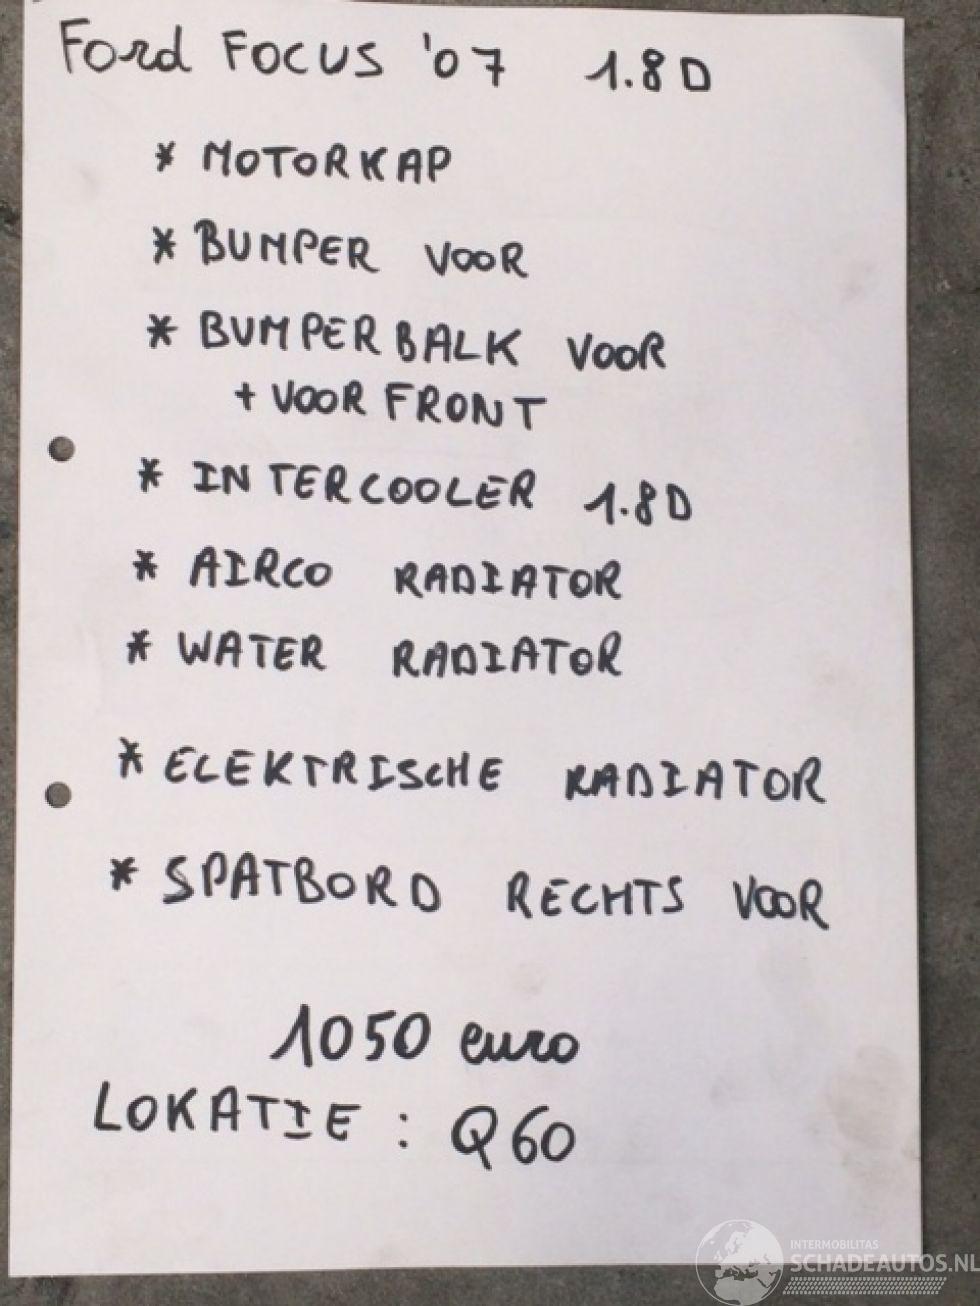 Ford FOCUS '07 1.8D
* MOTORKAP
* BUMPER VOOR
* BUMPERBALK VOOR
+ VOORFRONT
* INTERCOOLER 1.8D
* AIRCO RADIATOR
* WATER RADIATOR
* ELEKTRISCHE RADIATOR
* SPATBORD RECHTS VOOR
1050 euro
LOKATIE : Q60
INTERMOBILITAS
SCHADEAUTOS.NL